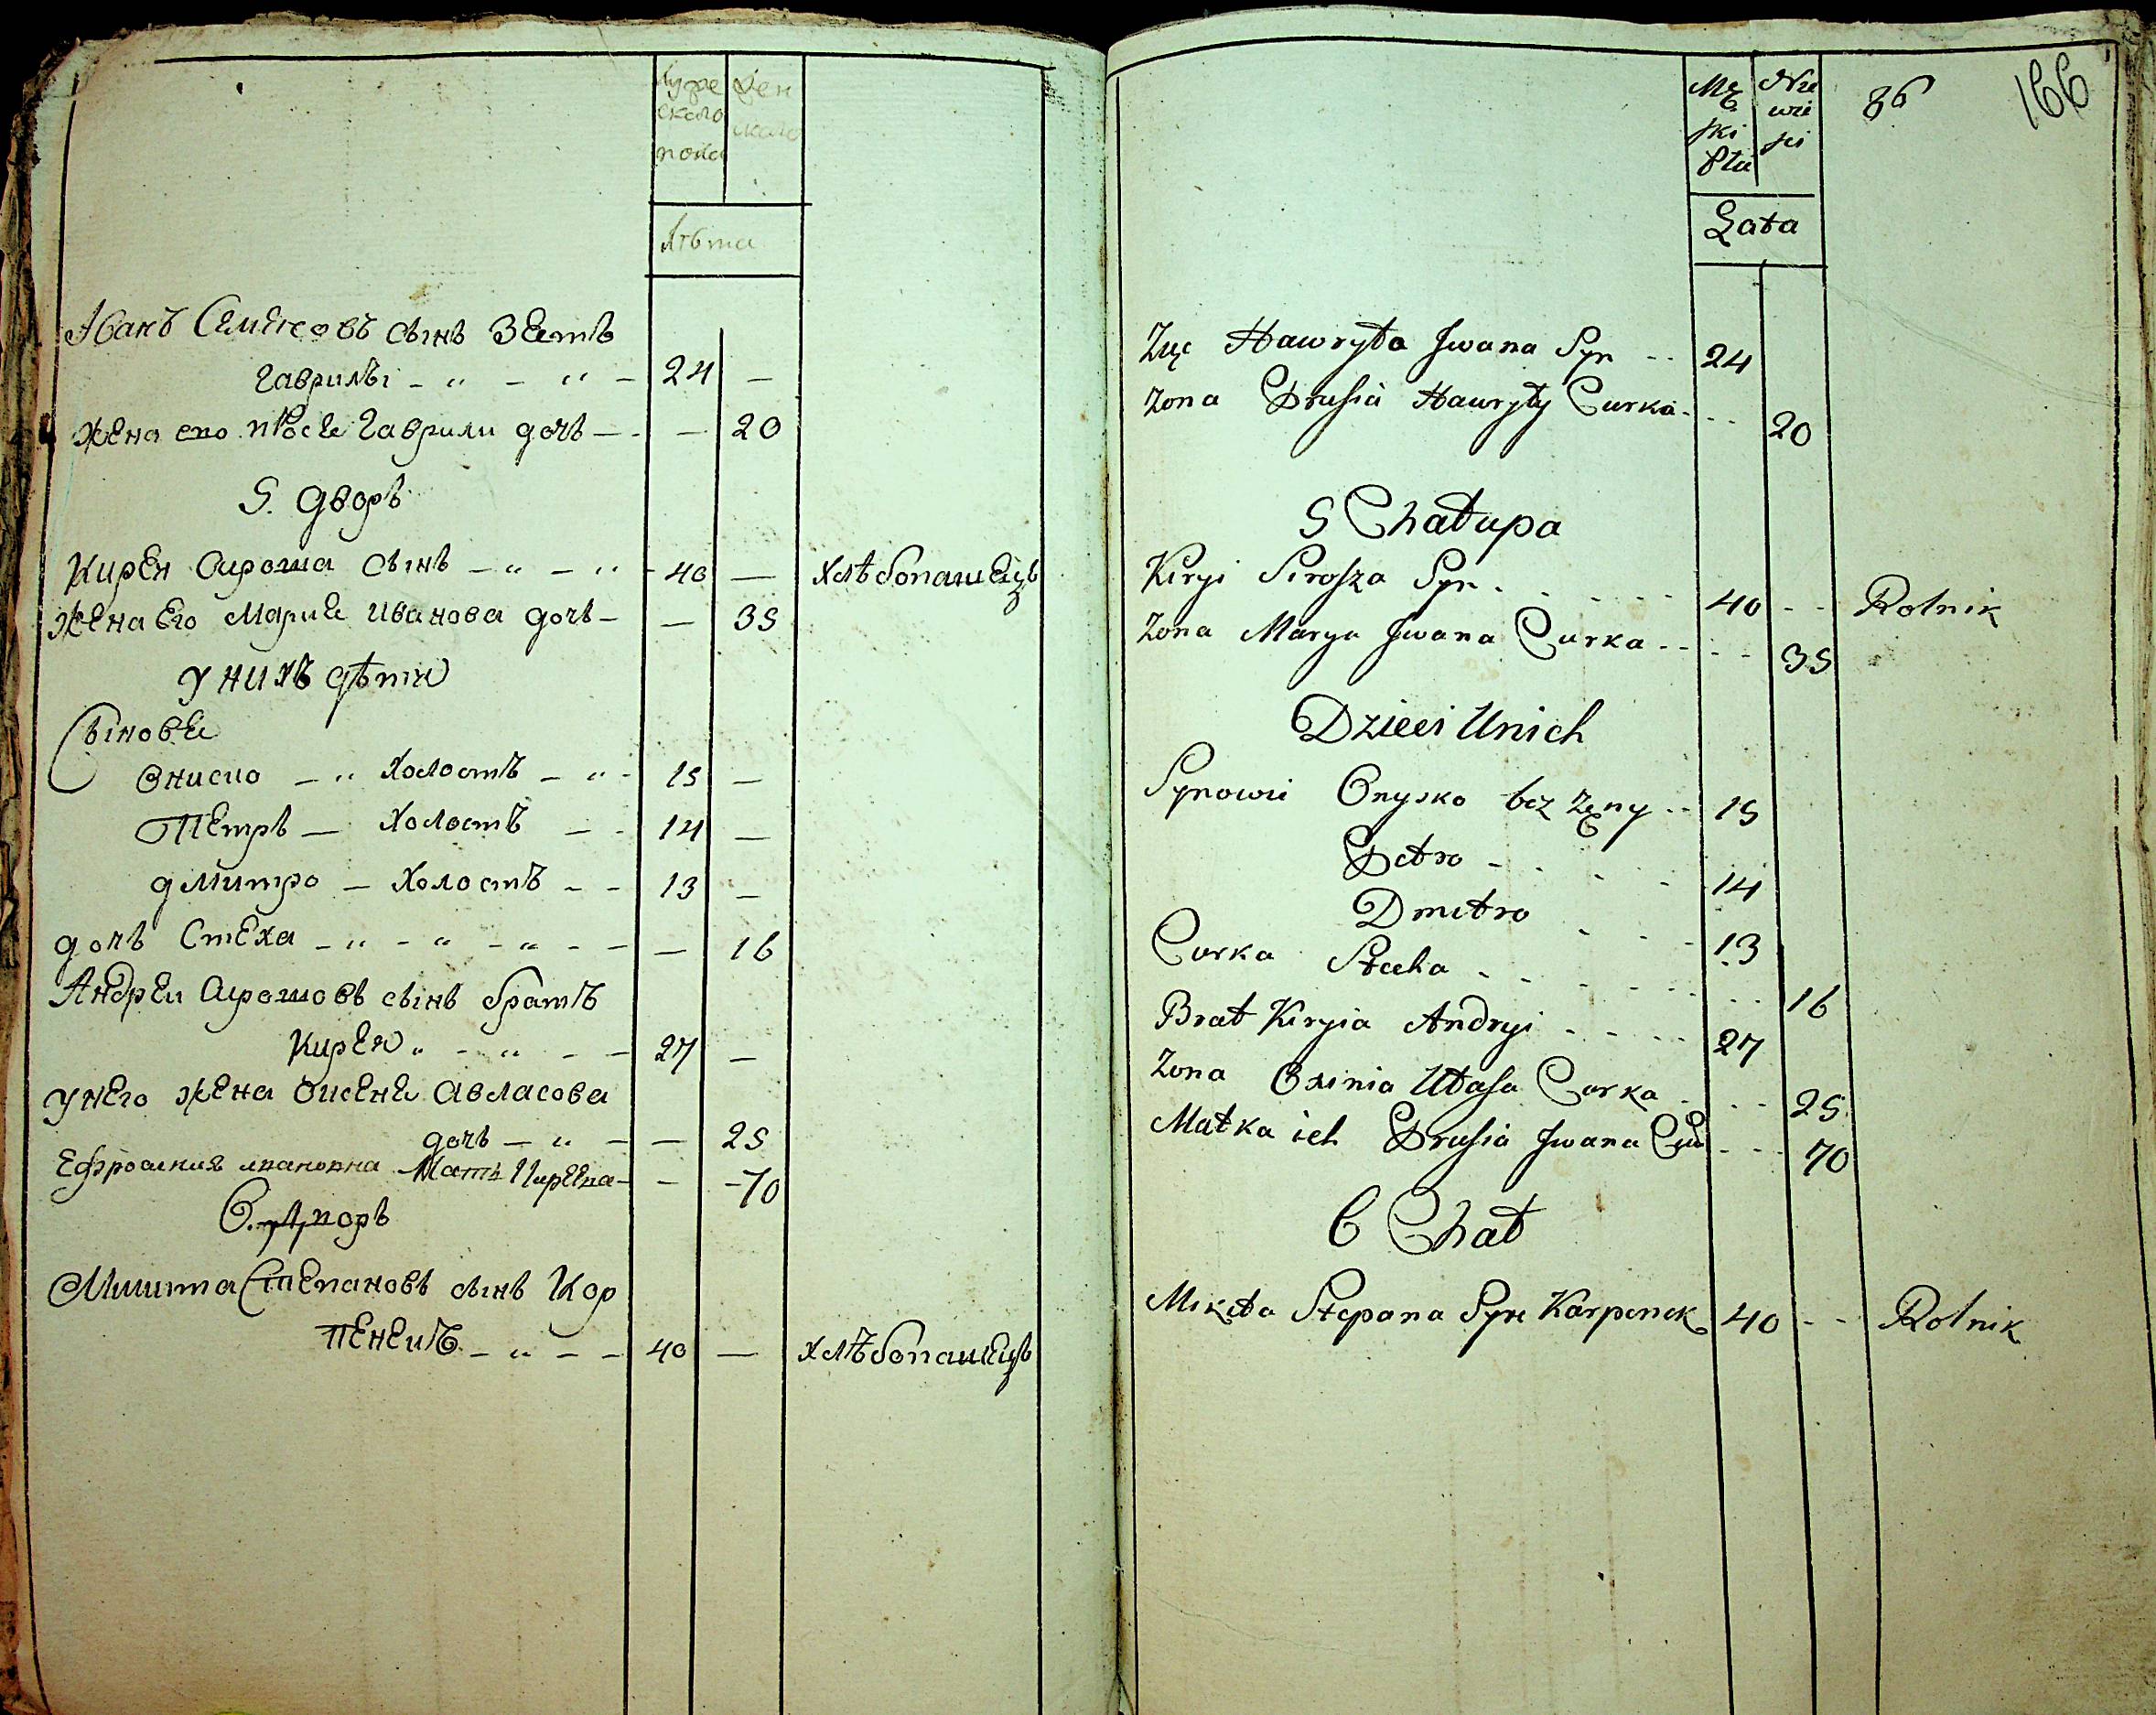 Муже Жен
ского ского
пола
Лѣта
Иванъ Семеновъ сынъ Зеть
Гаврилы - „ - „ - 24 —
Жена его Прося Гаврили дочь — - — 20
5. дворъ
Кирей Сироша сынъ - „ - „ - 40 — хлѣбопашецъ
Жена Его Мария Иванова дочь - — 35
У нихъ дѣти
Сынове
Онисио - „ Холостъ - „ - 15 —
Петръ — Холостъ - - 14 —
дмитро — Холостъ - - 13 —
дочь Стеха - „ - „ - „ - - — 16
Андрей Сирошовъ сынъ братъ
Кирея „ - „ - - 27 —
У него жена Оксеня Авласова
дочь - „ - — 25
Ефросиния Ивановна Мать Киреева - - 70
6. дворъ
Микита Степановъ сынъ Кор
пенекъ - „ - - 40 — хлѣбопашецъ
Mę Nie
ski wie
Płci sci
86 166
Lata
Zięć Hawryła Jwana Syn - - 24
Zona Prusia Hawryły Curka - - - 20
5 Chałupa
Kiryi Sirosza Syn - - - - - 40 - - Rolnik
Zona Marya Jwana Curka - - - - 35
Dzieci Unich
Synowie Onysko bez Zęny - - 15
Petro - - - - 14
Dmitro - - - 13
Curka Stecha - - - - - - - 16
Brat Kiryia Andryi - - - - 27
Zona Oxinia Ułasa Curka - - - 25
Matka ich Prusia Jwana Cur - - - 70
6 Chał
Mikita Stepana Syn Karpenek 40 - - Rolnik